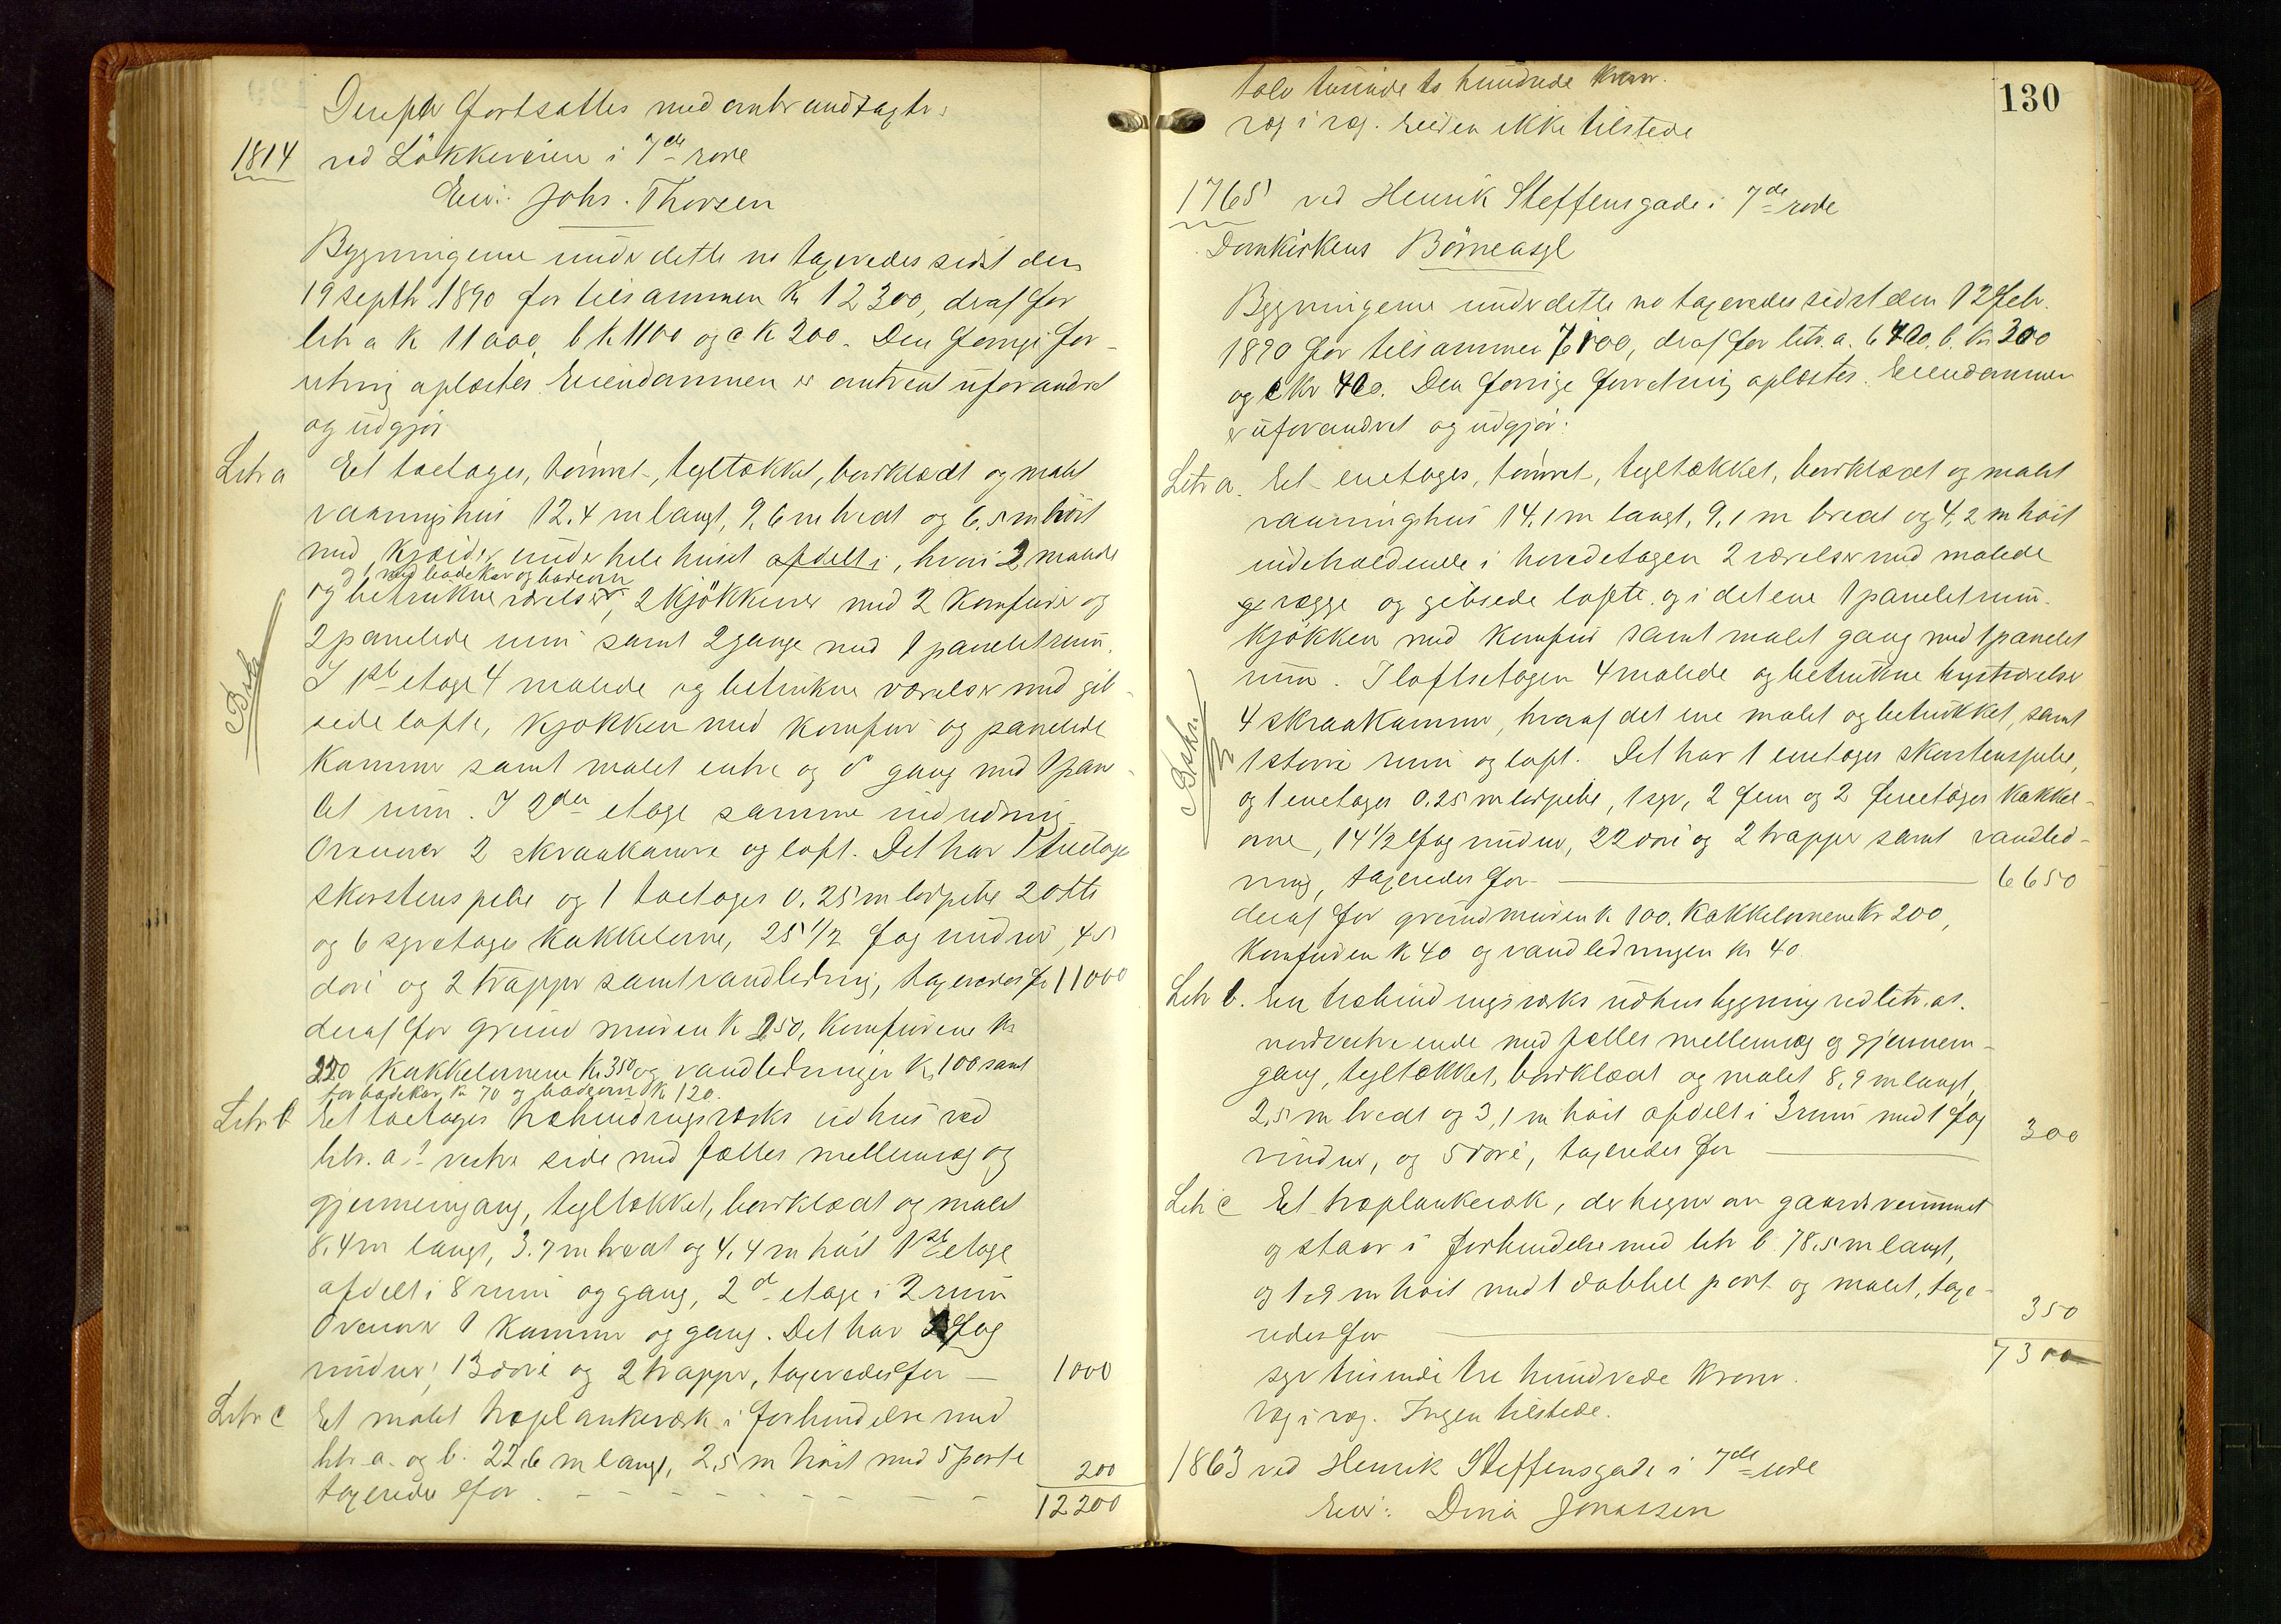 Derpaa fortsattes med ombrandtagter:
1814 ved Lökkeveien i 7de rode
Eier: Johs. Thorsen
Bygningerne under dette no taxeredes sidst den
19 septbr 1890 for tilsammen K 12300, deraf for
litr a K 11000, b K 1100 og c K 200. Den forrige for-
retning oplæstes. Eiendommen er omtrent uforandret
og udgjør
Litr a Et toetages, tømret, tegltækket, bordklædt og malet
vaaningshus 12.4 m langt, 9,6 m bredt og 6,5 m høit
med kjælder under hele huset afdelt i, hvori 2 malede
og 1 med badekar og badeovn
og betrukne værelser, 2 kjökkener med 2 komfurer og
2 panelede rum samt 2 gange med 1 panelet rum.
Beskr
I 1ste etage 4 malede og betrukne værelser med gib-
sede lofte, kjøkken med komfur og panelede
kammer samt malet entre og do gang med 1 pane-
let rum. I 2den etage samme indredning.
Ovenover 2 skraakamre og loft. Det har 1 treetages
skorstenspibe og 1 toetages 0.25 m lodpibe 2 otte
og 6 syvetages kakkelovne, 25 1/2 fag vinduer, 45
döre og 2 trapper samt vandledning, taxeredes for 11000
deraf for grundmuren K 250, komfurene Kr
220 kakkelovnene Kr. 350 og vandledningen K. 100 samt
for badekar K 70 og badeovn K 120.
Litr b Et toetages træbindingsværks udhus ved
litr. a.s vestre side med fælles mellemvæg og
gjennemgang, tegltækket, bordklædt og malet
8,4 m langt, 3.7 m bredt og 4,4 m høit 1ste etage
afdelt i 8 rum og gang, 2d etage i 2 rum
Ovenover 1 kammer og gang. Det har fag
vinduer, 13 døre og 2 trapper, taxeredes for — 1000
Litr c Et malet træplankeværk i forbindelse med
litr a. og b. 22,6 m langt, 2,5 m høit med 5 porte
taxeredes for - - - - - - - - - 200
12200
130
tolv tusinde to hundrede kroner.
væg i væg. Eieren ikke tilstede
1765 ved Henrik Steffensgade i 7de rode
Domkirkens Börneasyl
Bygningerne under dette no taxeredes sidst den 12 febr.
1890 for tilsammen 7100, deraf for litr. a. 6400, b. Kr 300
og c Kr 400. Den forrige forretning oplæstes. Eiendommen
er uforandret og udgjør:
Litr a. Et enetages, tømret, tegltækket, bordklædt og malet
vaaningshus 14,1 m langt, 9,1 m bredt og 4,2 m høit
indeholdende i hovedetagen 2 værelser med malede
vægge og gibsede lofte og i det ene 1 panelet rum.
kjökken med komfur samt malet gang med 1 panelet
rum. I loftsetagen 4 malede og betrukne kvistværelser
4 skraakammer, hvoraf det ene malet og betrukket, samt
Beskr
1 større rum og loft. Det har 1 enetages skorstenspibe,
og 1 enetages 0,25 m lodpibe, 1 syv, 2 fem og 2 fireetages kakkel-
ovne, 14 1/2 fag vinduer, 22 døre og 2 trapper samt vandled-
ning, taxeredes for — 6650
deraf for grundmuren K 100. Kakkelovnene Kr 200,
Komfuren K 40 og vandledningen Kr 40.
Litr b. En træbindingsværks udhusbygning ved litr. as.
nordvestre ende med fælles mellemvæg og gjennem-
gang, tegltækket, bordklædt og malet 8,9 m langt,
2,5 m bredt og 3,1 m høit afdelt i 3 rum med 1 fag
vinduer, og 5 døre, taxeredes for — 300
Litr c Et træplankeværk, der hegner om gaardsrummet
og staar i forbindelse med litr b. 78.5 m langt,
og 1.9 m høit med 1 dobbel port og malet, taxe-
redes for — 350
7300
syv tusinde tre hundrede kroner.
væg i væg. Ingen tilstede.
1863 ved Henrik Steffensgade i 7de rode
Eier: Dina Jonassen